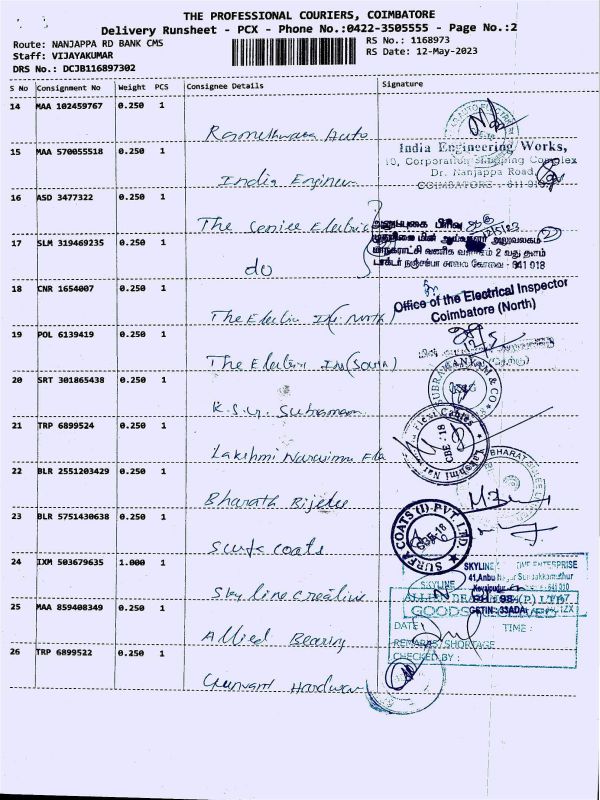 THE PROFESSIONAL COURIERS, COIMBATORE
Delivery Runsheet - PCX - Phone No.:0422-3505555 - Page No.:2
Route: NANJAPPA RD BANK CMS
RS No.: 1168973
Staff: VIJAYAKUMAR
RS Date: 12-May-2023
DRS No.: DCJB116897302
S No Consignment No Weight PCS Consignee Details Signature
14 MAA 102459767 0.250 1
Rameshwara Auto
15 MAA 570055518 0.250 1
India Engineer
India Engineering Works,
10, Corporation Shopping Complex
Dr. Nanjappa Road,
COIMBATORE
16 ASD 3477322 0.250 1
The Senior Electric
அனுப்புகை பிரிவு
12/5/23
17 SLM 319469235 0.250 1
do
அலுவலகம்
மாநகராட்சி வணிக வளாகம் 2 வது தளம்
டாக்டர் நஞ்சப்பா சாலை கோவை - 641 018
18 CNR 1654007 0.250 1
The Electri IN (North)
Office of the Electrical Inspector
Coimbatore (North)
19 POL 6139419 0.250 1
The Electri IN (South)
20 SRT 301865438 0.250 1
K.S.G. Subramam
SUBRAMANYAM & CO
21 TRP 6899524 0.250 1
Lakshmi Narasimma Ele
Flexi Cables
CBE - 18
22 BLR 2551203429 0.250 1
Bharath Bijelee
BHARAT BIJLEE
23 BLR 5751430638 0.250 1
Surfa coats
SURFA COATS (I) PVT. LTD.
CBE-18
24 IXM 503679635 1.000 1
Skyline creative
SKYLINE
ENTERPRISE
41,Anbu Nagar Sundakkamuthur
GSTIN: 33ADA
25 MAA 859408349 0.250 1
Allied Bearing
(P) LTD
GOODS RECEIVED
DATE:
TIME:
REMARKS/SHORTAGE
CHECKED BY:
26 TRP 6899522 0.250 1
Gunvant Hardwar